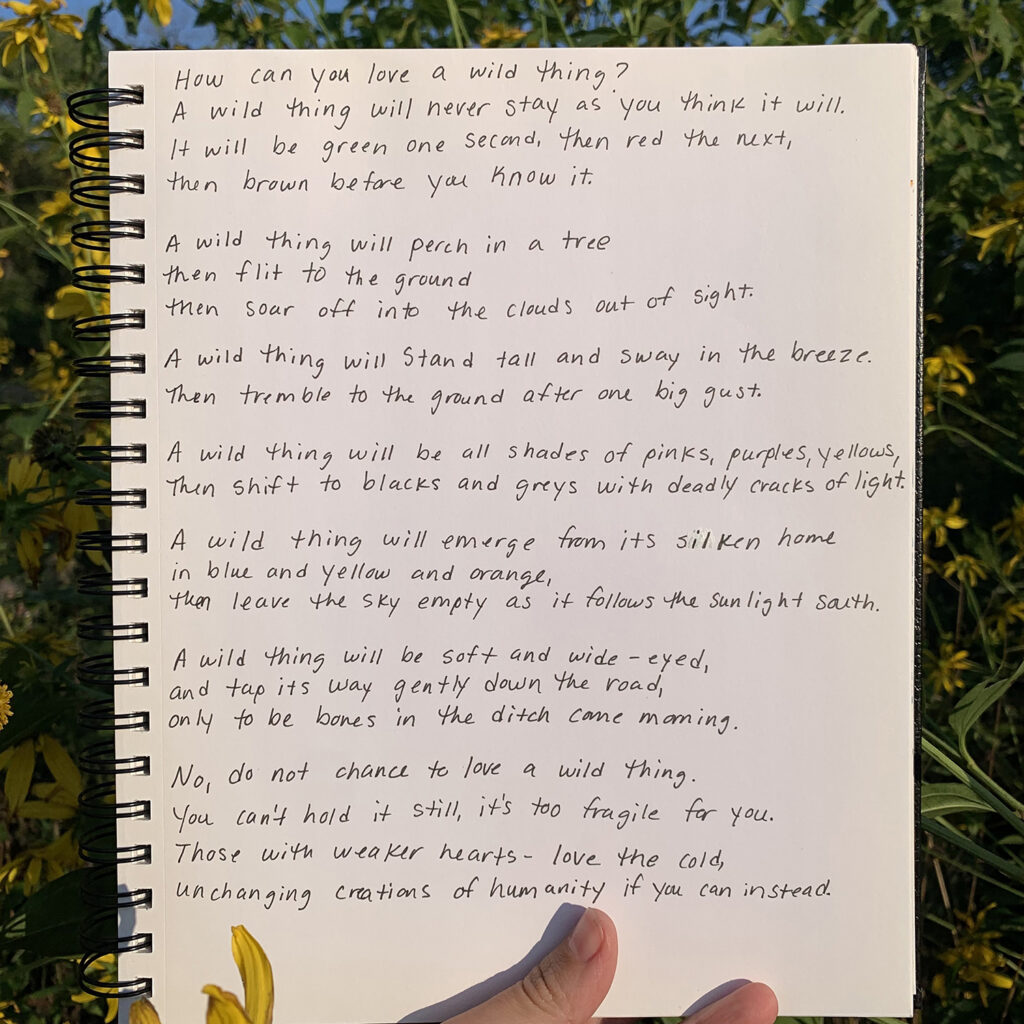 How can you love a wild thing?
A wild thing will never stay as you think it will.
It will be green one second, then red the next,
then brown before you know it.
A wild thing will perch in a tree
then flit to the ground
then soar off into the clouds out of sight.
A wild thing will stand tall and sway in the breeze.
Then tremble to the ground after one big gust.
A wild thing will be all shades of pinks, purples, yellows,
Then shift to blacks and greys with deadly cracks of light.
A wild thing will emerge from its silken home
in blue and yellow and orange,
then leave the sky empty as it follows the sunlight south.
A wild thing will be soft and wide-eyed,
and tap its way gently down the road,
only to be bones in the ditch come morning.
No, do not chance to love a wild thing.
You can't hold it still, it's too fragile for you.
Those with weaker hearts - love the cold,
unchanging creations of humanity if you can instead.